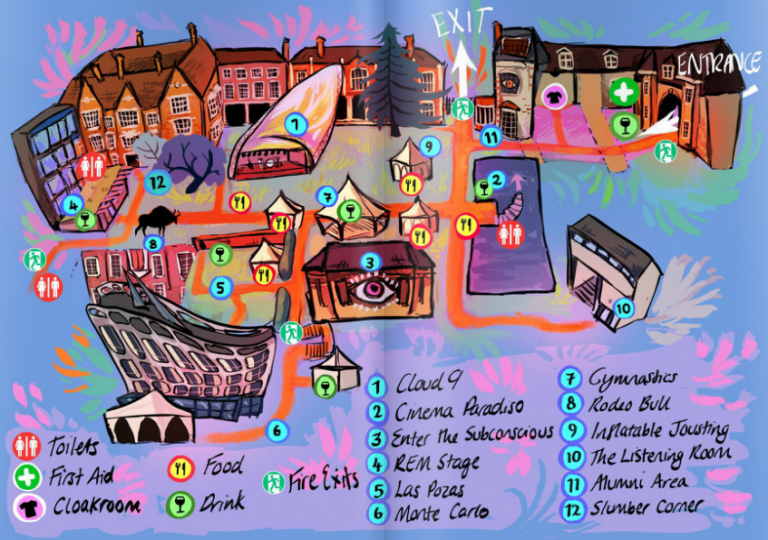 EXIT
ENTRANCE
1
9
11
2
12
7
4
8
3
5
10
6
Toilets
First Aid
Cloakroom
Food
Drink
Fire Exits
1 Cloud 9
2 Cinema Paradiso
3 Enter the Subconscious
4 REM Stage
5 Las Pozas
6 Monte Carlo
7 Gymnastics
8 Rodeo Bull
9 Inflatable Jousting
10 The Listening Room
11 Alumni Area
12 Slumber Corner